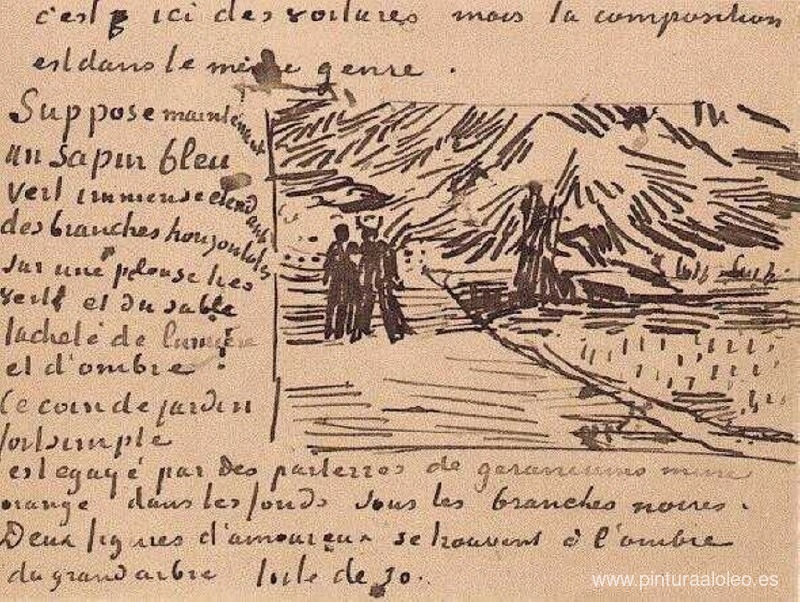 c'est ici des voitures mais la composition
est dans le même genre.
Suppose maintenant
un sapin bleu
vert immense etendant
des branches horizontales
sur une pelouse tres
verte et du sable
tacheté de lumière
et d'ombre.
Ce coin de jardin
fort simple
est egayé par des parterres de geraniums mine
orange dans les fonds sous les branches noires.
Deux figures d'amoureux se trouvent à l'ombre
du grand arbre toile de 30.
www.pinturaaloleo.es